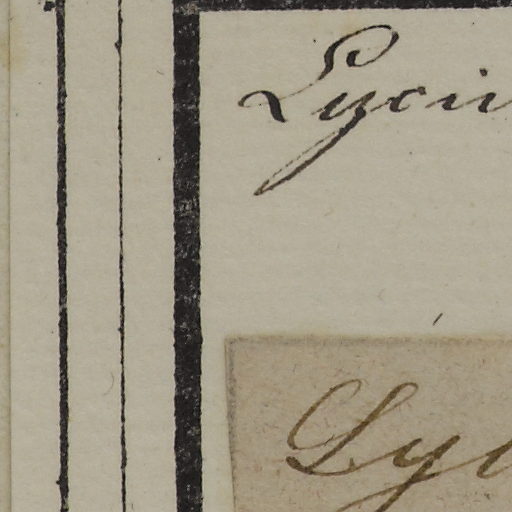 Lyciu
Lyc